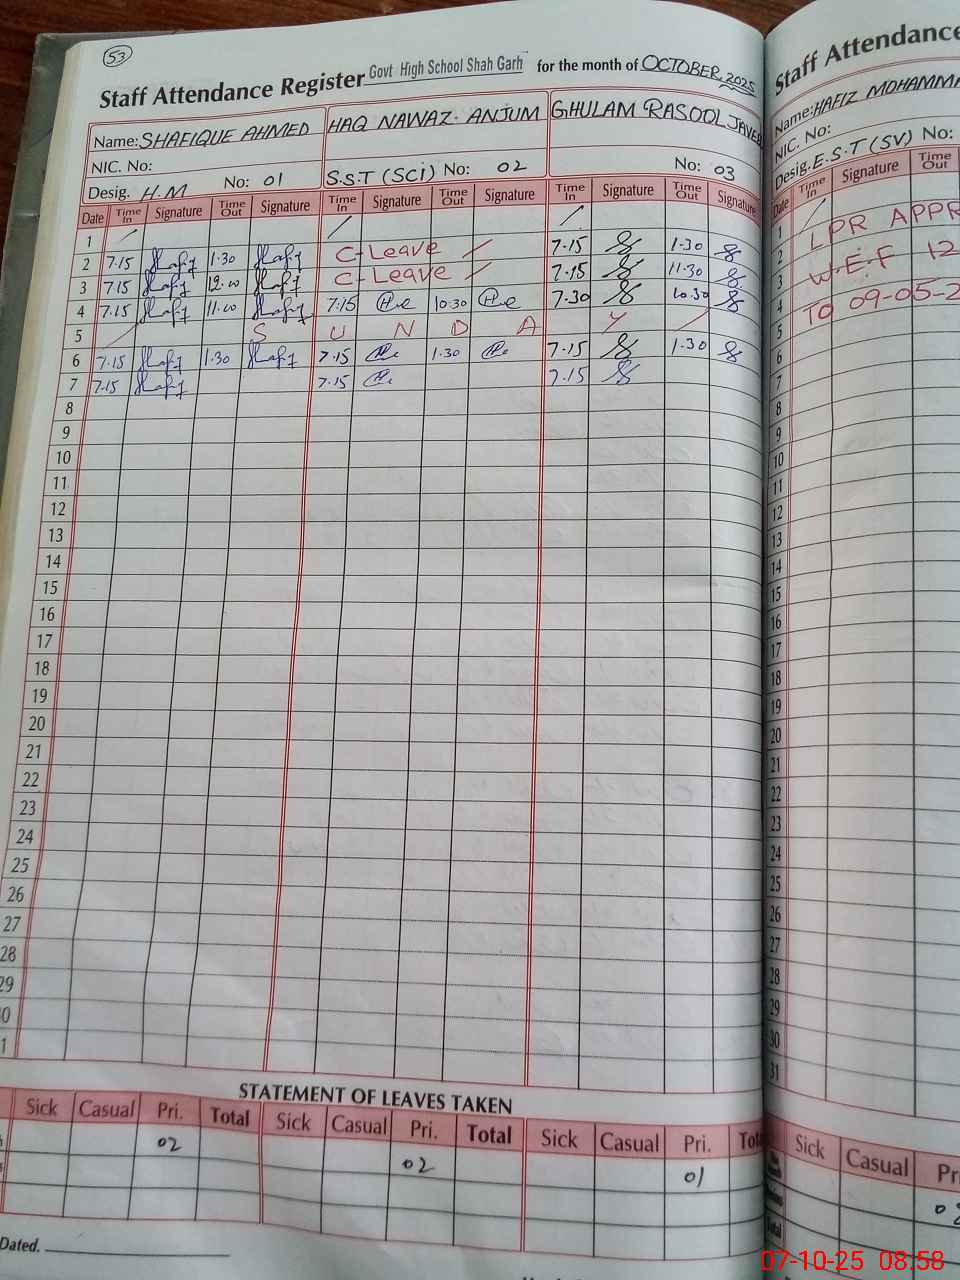 53
Staff Attendance Register Govt High School Shah Garh for the month of OCTOBER, 2025
Name: SHAFIQUE AHMED HAQ NAWAZ. ANJUM GHULAM RASOOL JAVED
NIC. No:
Desig. H.M No: 01 S.S.T (SCi) No: 02 No: 03
Date Time In Signature Time Out Signature Time In Signature Time Out Signature Time In Signature Time Out Signature
1
2 7.15 1.30 C-Leave 7.15 1.30
3 7.15 12.00 C-Leave 7.15 11.30
4 7.15 11.00 7.15 10.30 7.30 10.30
5 S U N D A Y
6 7.15 1.30 7.15 1.30 7.15 1.30
7 7.15 7.15 7.15
8
9
10
11
12
13
14
15
16
17
18
19
20
21
22
23
24
25
26
27
28
29
0
1
STATEMENT OF LEAVES TAKEN
Sick Casual Pri. Total Sick Casual Pri. Total Sick Casual Pri. Tot
02 02 01
Dated.
Staff Attendance
Name: HAFIZ MOHAMMA
NIC. No:
Desig. E.S.T (SV) No:
Date Time In Signature Time Out
1 LPR APPR
2
3 W.E.F 12
4 TO 09-05-2
5
6
7
8
9
10
11
12
13
14
15
16
17
18
19
20
21
22
23
24
25
26
27
28
29
30
31
Sick Casual Pri
07-10-25 08.58